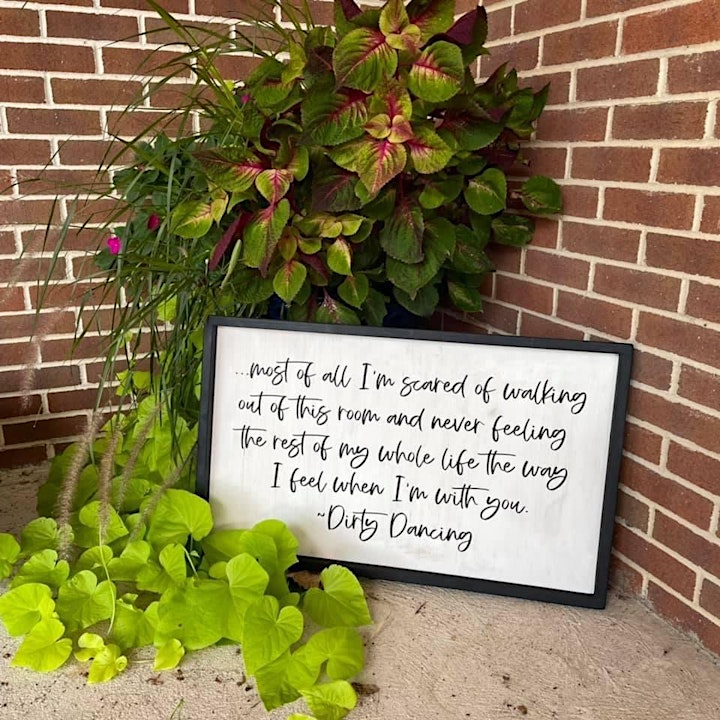 ...most of all I'm scared of walking
out of this room and never feeling
the rest of my whole life the way
I feel when I'm with you.
~Dirty Dancing